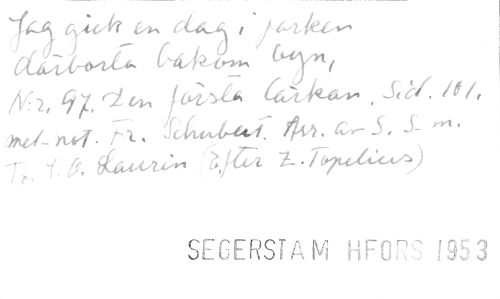 Jag gick en dag i parken
därborta bakom byn,
Nr. 97. Den första lärkan. Sid. 101.
mel-not. Fr. Schubert. Arr. av S. S-m.
T. O. Laurin (Efter Z. Topelius)
SEGERSTAM HFORS 1953